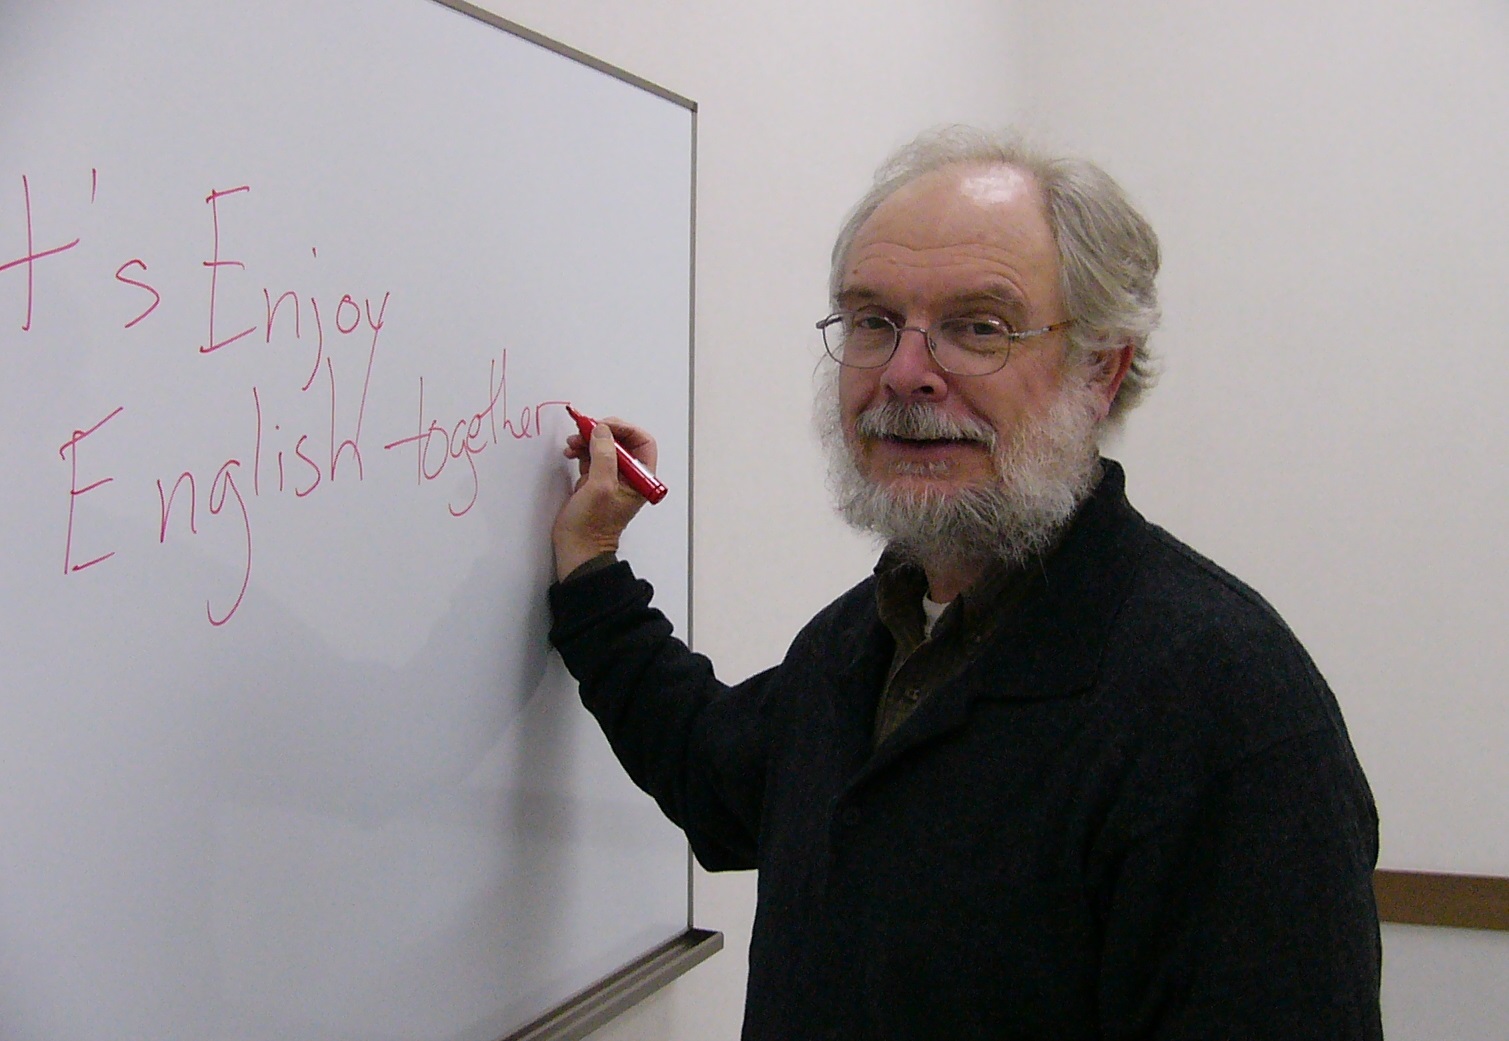 t's Enjoy
English together